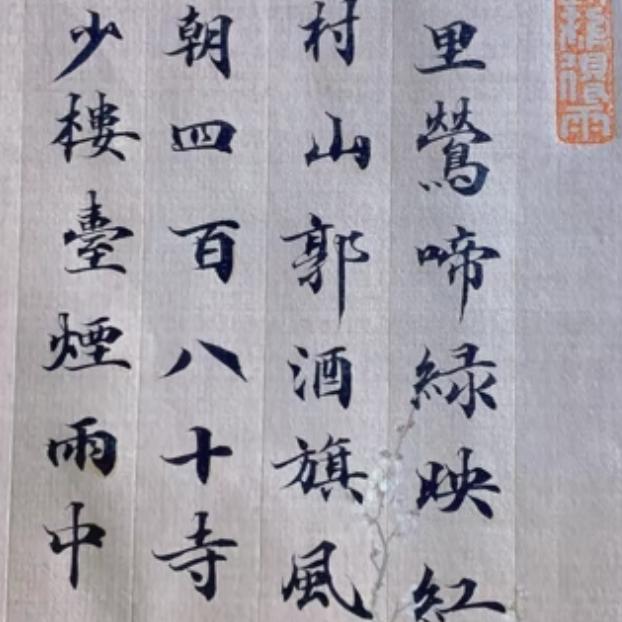 里鶯啼緑映紅
村山郭酒旗風
朝四百八十寺
少樓臺煙雨中